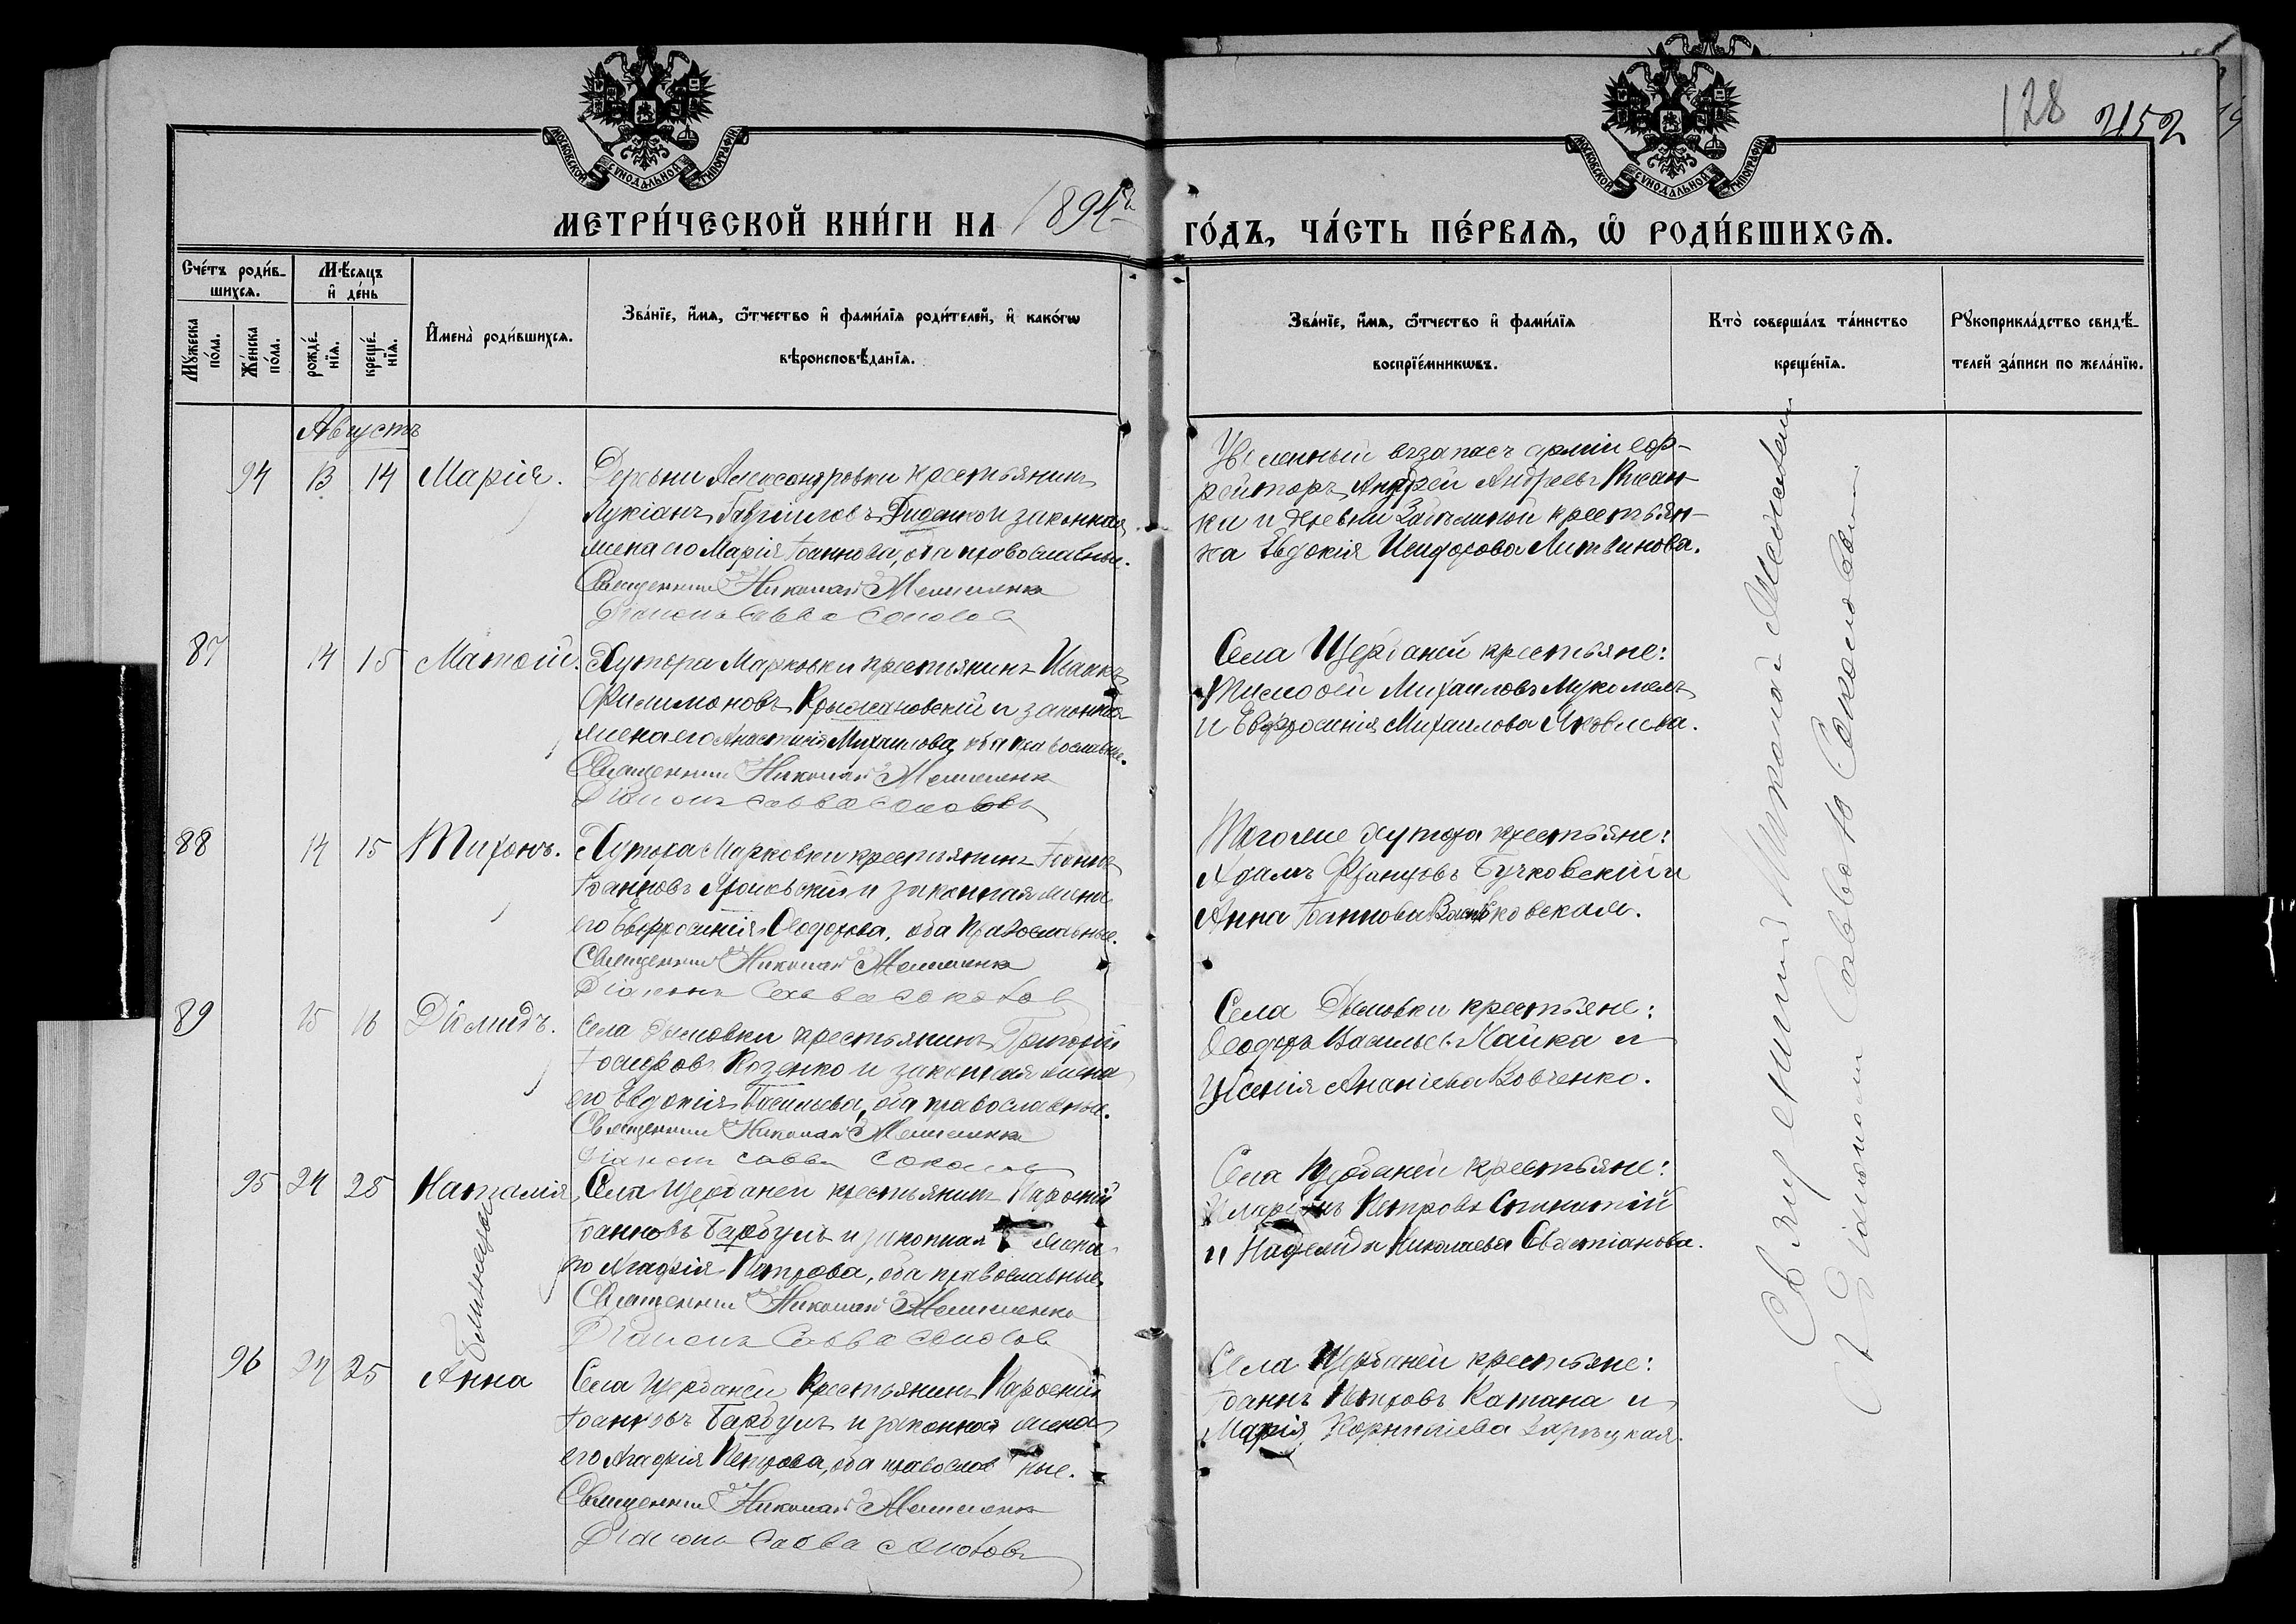 128 452
МОСКОВСКОЙ СѴНОДАЛЬНОЙ ТИПОГРАФІИ
МОСКОВСКОЙ СѴНОДАЛЬНОЙ ТИПОГРАФІИ
МЕТРИ́ЧЕСКОЙ КНИ́ГИ НА 1894й ГО́ДЪ, ЧА́СТЬ ПЕ́РВАѦ, Ѽ РОДИ́ВШИХСѦ.
Сче́тъ роди́в-
шихсѧ.
Мѣ́сѧцъ
и҆ де́нь
Мꙋ́жеска по́ла.
Же́нска по́ла.
рожде́-
нїѧ.
креще́-
нїѧ.
И҆мена̀ роди́вшихсѧ.
Зва́нїе, и҆́мѧ, ѻ҆́тчество и҆ фами́лїѧ роди́телей, и҆ како́гѡ
вѣроисповѣ́данїѧ.
Зва́нїе, и҆́мѧ, ѻ҆́тчество и҆ фами́лїѧ
воспрїе́мникѡвъ.
Кто̀ соверша́лъ та́инство
креще́нїѧ.
Рꙋкоприкла́дство свидѣ́-
телей за́писи по жела́нїю.
Августъ
94 13 14 Марія. Деревни Александровки крестьянинъ
Лукіанъ Гавріиловъ и законная
жена его Марія Іоаннова, оба православные.
Священникъ Николай
Діаконъ Савва Соколовъ
Уволенный въ запасъ арміи еф-
рейторъ Андрей Андреевъ
ки и деревни крестьян-
ка Евдокія Исидорова Литвинова.
87 14 15 Матѳій. Хутора Марковки крестьянинъ Исаакъ
Филимоновъ Крыжановскій и законная
жена его Анастасія Михаилова, оба православные.
Священникъ Николай
Діаконъ Савва Соколовъ
Села Щербаней крестьяне:
Тимоѳей Михаиловъ Мукомелъ
и Евфросинія Михаилова Яковлева.
88 14 15 Тихонъ. Хутора Марковки крестьянинъ Іоаннъ
Іоанновъ и законная жена
его Евфросинія Ѳеодорова, оба православные.
Священникъ Николай
Діаконъ Савва Соколовъ
Того же хутора крестьяне:
Адамъ Францовъ Бучковскій и
Анна Іоаннова
89 15 16 Діомидъ. Села Дымовки крестьянинъ Григорій
Іосифовъ Козенко и законная жена
его Евдокія Васильева, оба православные.
Священникъ Николай
Діаконъ Савва Соколовъ
Села Дымовки крестьяне:
Ѳеодоръ Васильевъ Чайка и
Ксенія Ананіева Вовченко.
95 24 25 Наталія Села Щербаней крестьянинъ Парѳеній
Іоанновъ Барбулъ и законная жена
его Агафія Петрова, оба православные
Священникъ Николай
Діаконъ Савва Соколовъ
Близнецы
Села Щербаней крестьяне:
Петровъ
и Надежда Николаева Севастіанова.
96 24 25 Анна Села Щербаней крестьянинъ Парѳеній
Іоанновъ Барбулъ и законная жена
его Агафія Петрова, оба православные.
Священникъ Николай
Діаконъ Савва Соколовъ
Села Щербаней крестьяне:
Іоаннъ Петровъ Катана и
Марія Корниліева Зарѣцкая.
Священникъ Николай
Діаконъ Савва Соколовъ